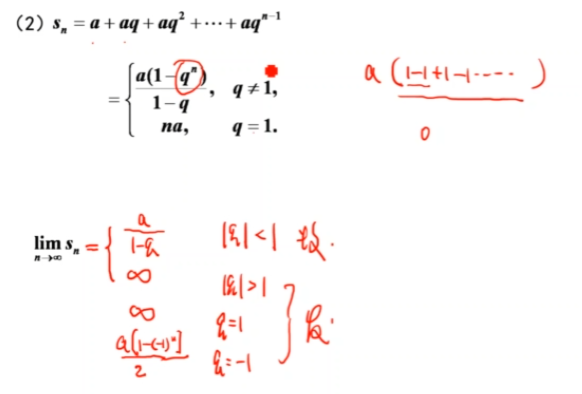 (2) sₙ = a + aq + aq² + ⋯ + aqⁿ⁻¹
= { a(1−qⁿ)/(1−q), q ≠ 1,
na, q = 1.
a (1−1+1−1⋯⋯)
0
lim n→∞ sₙ = { a/(1−q) |q|<1 收敛.
∞ |q|>1
∞ q=1
a[1−(−1)ⁿ]/2 q=−1